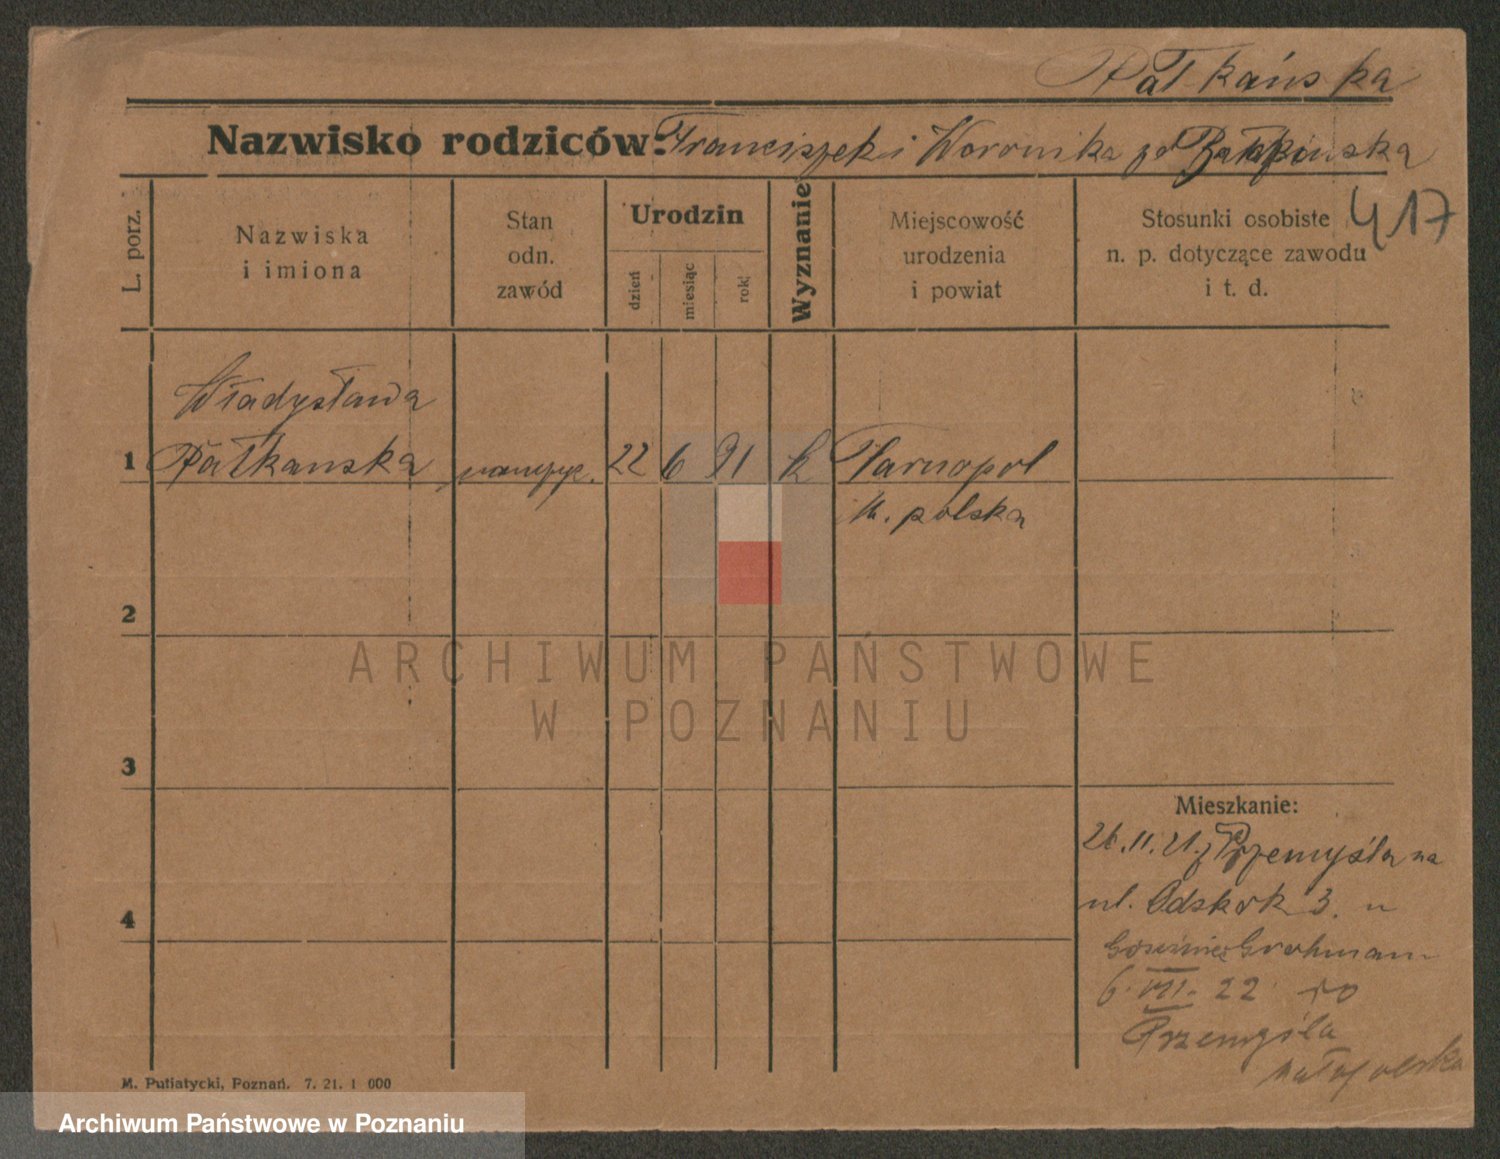 Pałkańska
Nazwisko rodziców: Franciszek i Weronika zd
417
L. porz.
Nazwiska
i imiona
Stan
odn.
zawód
Urodzin
dzień
miesiąc
rok
Wyznanie
Miejscowość
urodzenia
i powiat
Stosunki osobiste
n. p. dotyczące zawodu
i t. d.
Władysława
1 Pałkanska naucyc. 22 6 91 k Tarnopol
M. polska
2
3
4
Mieszkanie:
26.11.21. z Przemyśla na
ul. Odskok 3. u
Grohman
6. VII. 22 do
Przemyśla
Małopolska
M. Putiatycki, Poznań. 7. 21. 1 000
ARCHIWUM PAŃSTWOWE
W POZNANIU
Archiwum Państwowe w Poznaniu